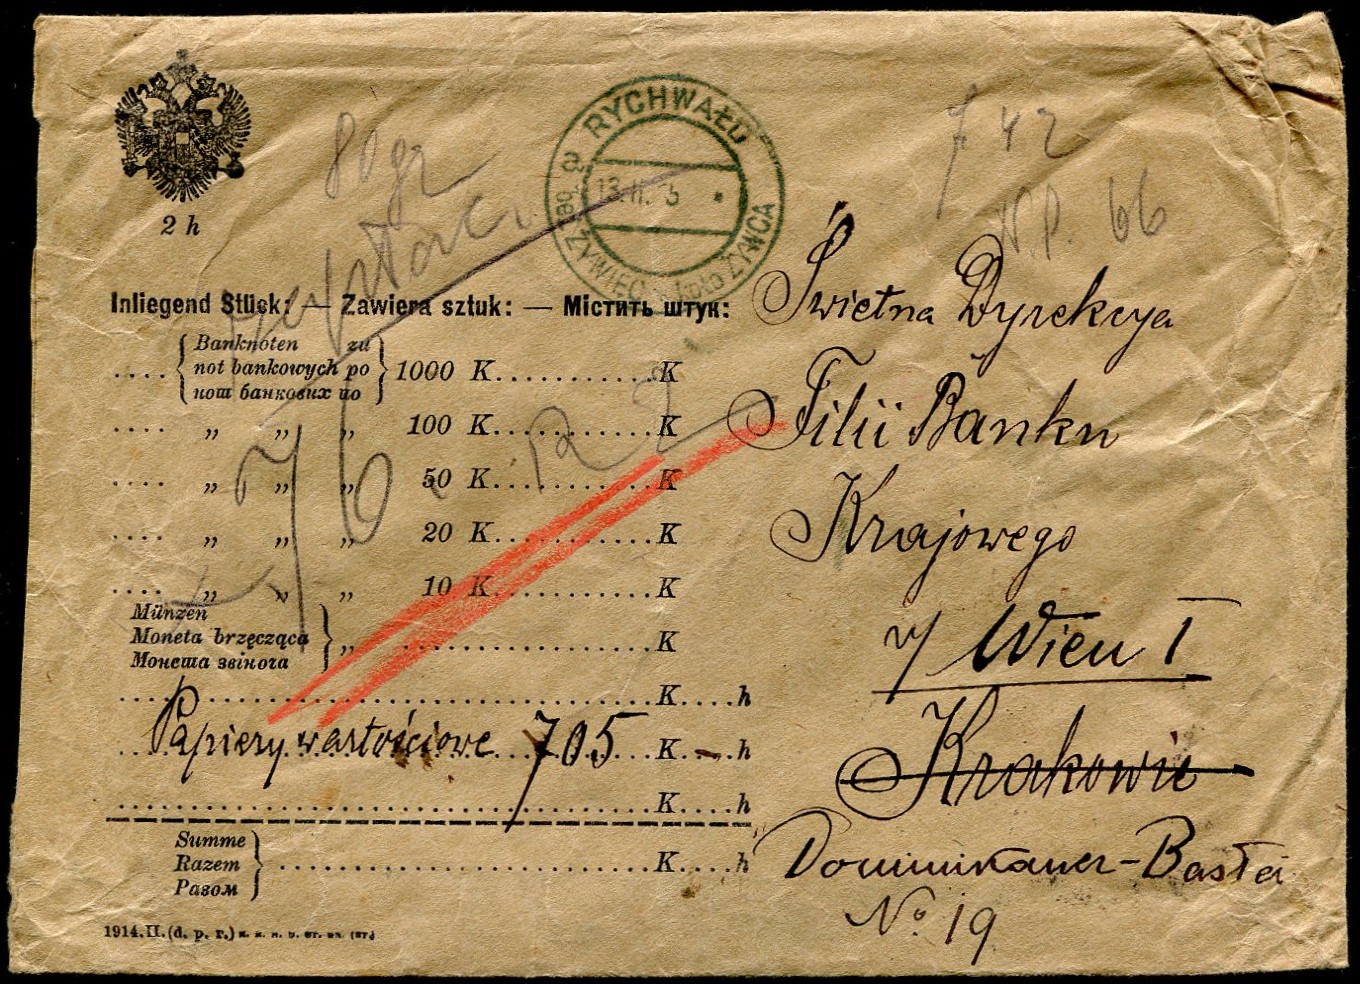 2 h
80 gr
RYCHWAŁD
a
bei ŻYWIEC koło ŻYWCA
13. II.
742
66
Inliegend Stück: — Zawiera sztuk: — Містить штук:
Banknoten zu
not bankowych po
нот банкових по
.... 1000 K............K
.... „ „ „ 100 K............K
.... „ „ „ 50 K............K
.... „ „ „ 20 K............K
.... „ „ „ 10 K............K
Münzen
Moneta brzęcząca
Монета звіноча
„ ....................K
....................K....h
Papiery wartościowe 705 K - h
....................K....h
Summe
Razem
Разом
....................K....h
1914. II. (d. p. r.)
76
Świetna Dyrekcya
Filii Banku
Krajowego
w/ Wien I
Krakowie
Dominikaner-Bastei
No 19